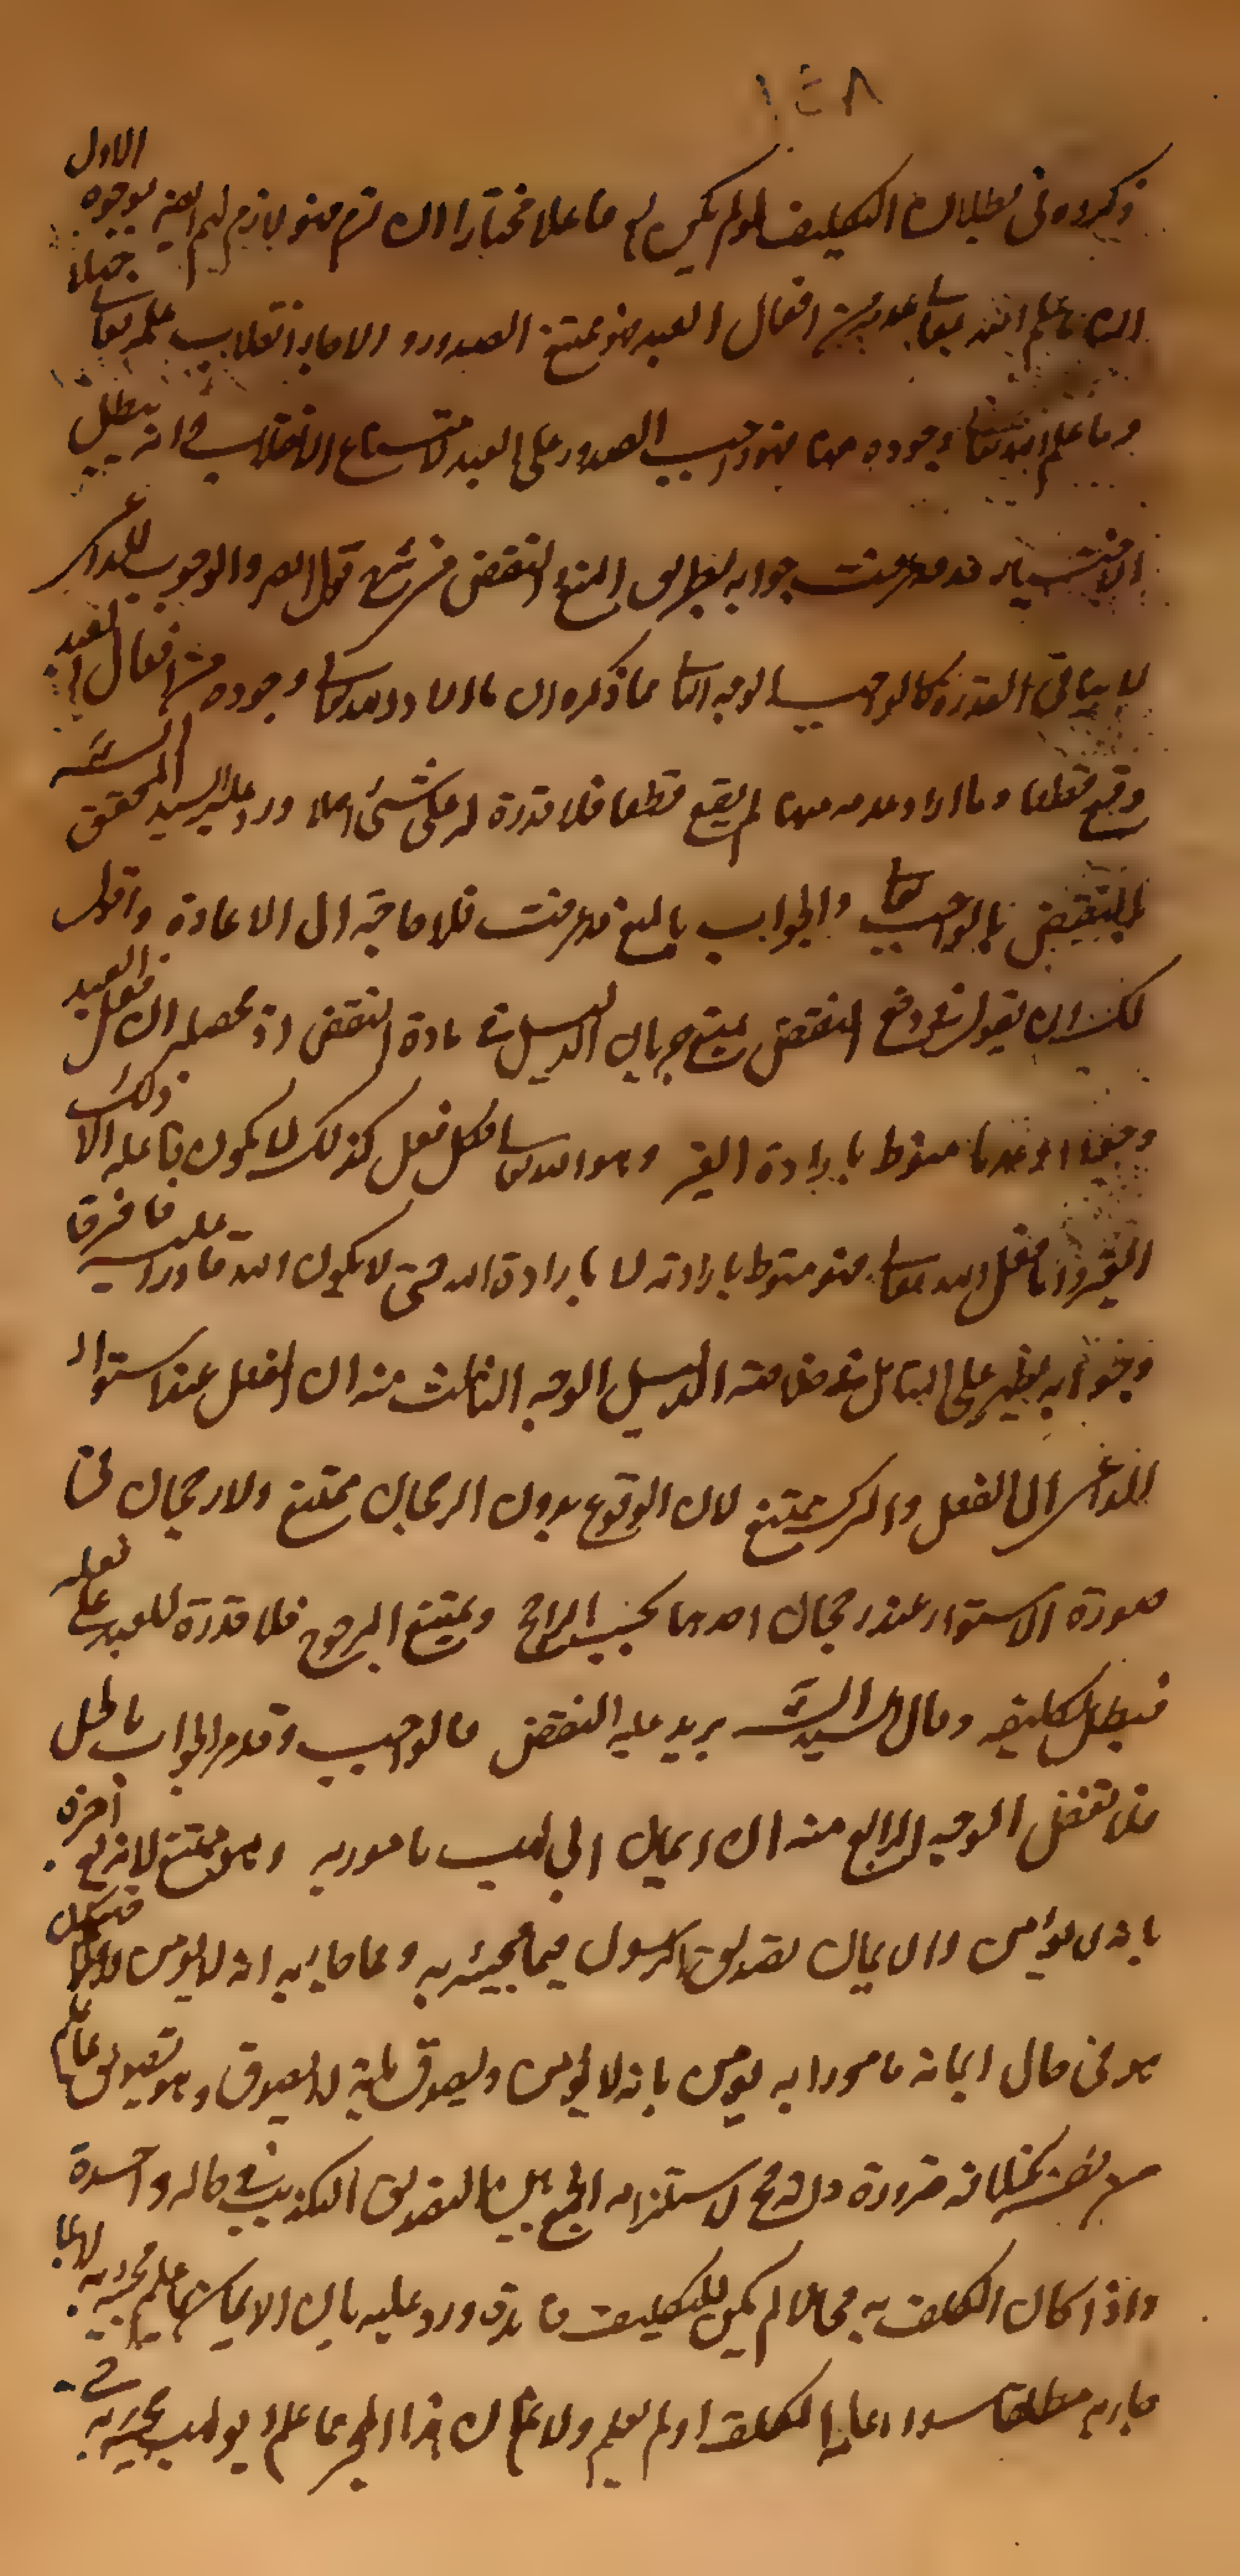 ١٤٨
ذكروه في بطلان التكليف لو لم يكن له فاعلا مختارا ان تم فهو لازم لهم ايضا بوجوه الاول
ان ما علم الله تعالى عدمه من افعال العبد فهو ممتنع الصدور والا جاز انقلاب علمه تعالى جهلا
وما علم الله تعالى وجوده منها فهو واجب الصدور على العبد لامتناع الانقلاب انه يبطل
الاختيار قد عرفت جوابه بطريق المنع النقض من قوله والوجوب للداعي
لا ينافي القدرة كالواجب الوجه الثاني ما ذكروه ان ما اراد الله تعالى وجوده من افعال العبد
وقع قطعا وما اراد عدمه منها لم يقع قطعا فلا قدرة له على شيء اصلا ورد عليه السيد المحقق
بالنقض بالواجب تعالى والجواب بالمنع قد عرفت فلا حاجة الى الاعادة واقول
لك ان يقول في دفع النقض يمنع جريان الدليل في مادة النقض اذ محصله ان فعل العبد
منوط بارادة الغير وهو الله تعالى فكل فعل كذلك لا يكون فاعله الا ذلك
الغير واما فعل الله تعالى فهو منوط بارادته لا بارادة الله حتى لا يكون الله قادرا عليه فافرقا
وجوابه يظهر على التأمل الدليل الوجه الثالث منه ان الفعل عند استواء
الداعي الى الفعل والترك يمتنع لان الوقوع بدون الرجحان ممتنع ولا رجحان في
صورة الاستواء عند رجحان احدهما يجب الراجح ويمتنع المرجوح فلا قدرة للعبد على فعله
فيبطل تكليفه وقال السيد السند يريد عليه النقض بالواجب وقد مر الجواب بالحل
فلا تغفل الوجه الرابع منه ان ايمان ابي لهب مامور به وهو ممتنع لانه تعالى اخبره
بانه لا يؤمن والايمان تصديق الرسول فيما مجيئه به ومما جاء به انه لا يؤمن فيكون
هو في حال ايمانه مامورا به يؤمن بانه لا يؤمن ويصدق بانه لا يصدق وهو تصديق بما علم
من نفسه خلافه ضرورة وانه مح لاستلزامه الجمع بين التصديق التكذيب في حالة واحدة
واذا كان المكلف به محالا لم يكن للتكليف فائدة ورد عليه بان الايمان بما علم مجيئه به لا بما
جاء به مطلقا سواء علمه المكلف او لم يعلم ولا نم ان هذا الخبر مما علم ابو لهب مجيئه به